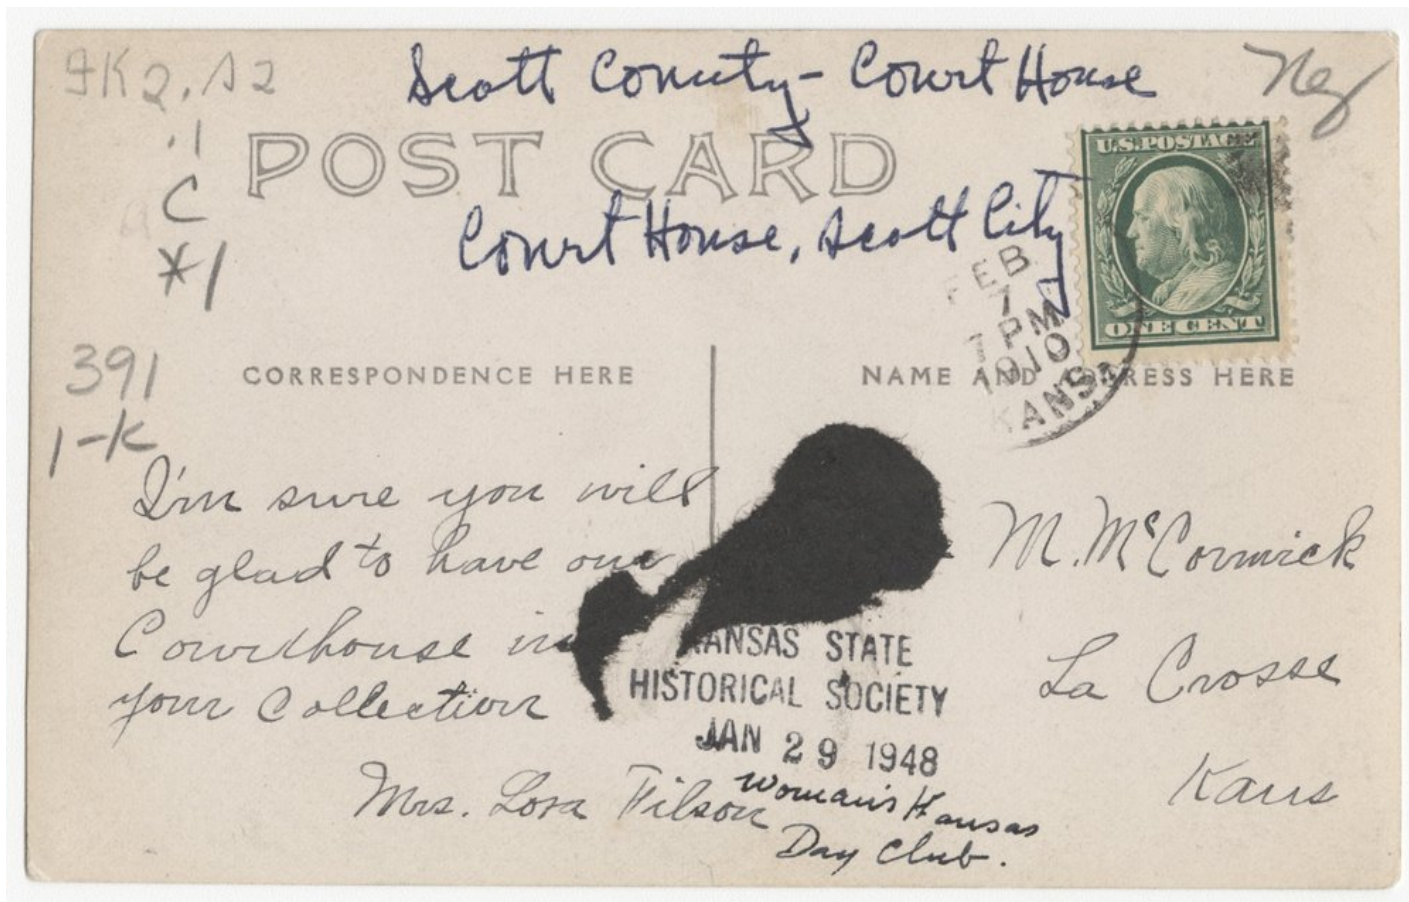 FK2.S2
.1
C
*1
Scott County - Court House
Neg
POST CARD
Court House, Scott City
U.S.POSTAGE
ONE CENT
FEB
7
7 PM
1910
KANSAS
391
1-K
CORRESPONDENCE HERE
NAME AND ADDRESS HERE
I'm sure you will
be glad to have our
Courthouse in
your Collection
Mrs. Lora Filson
M. McCormick
La Crosse
Kans
KANSAS STATE
HISTORICAL SOCIETY
JAN 29 1948
Woman's Kansas
Day Club.